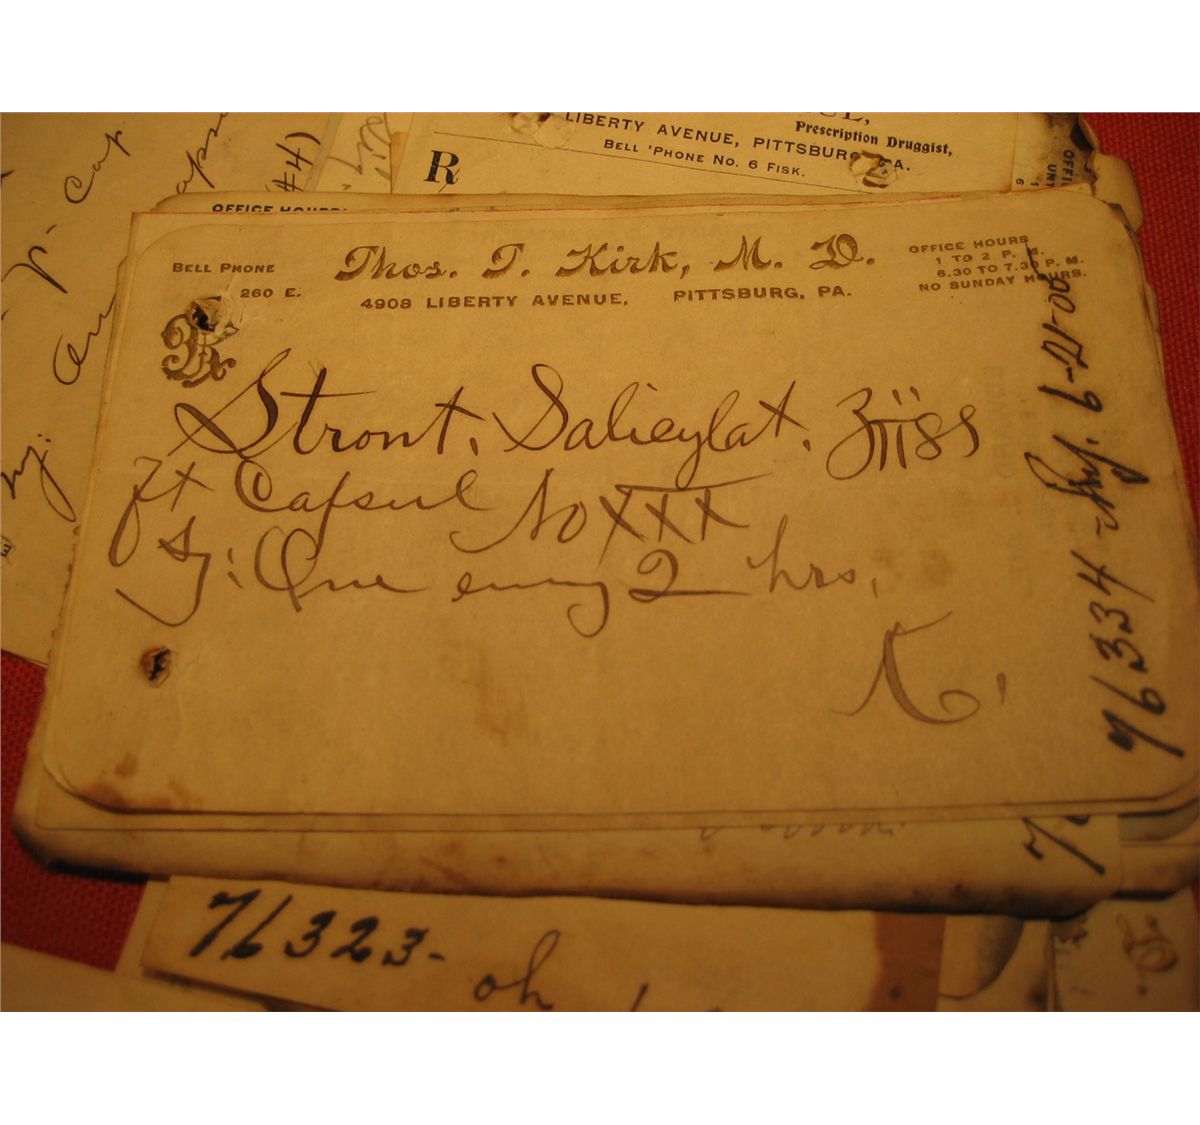 LIBERTY AVENUE, PITTSBURG, PA.
Prescription Druggist,
BELL 'PHONE No. 6 FISK.
R
#4)
OFFICE HOURS
BELL PHONE
260 E.
Thos. T. Kirk, M. D.
4908 LIBERTY AVENUE. PITTSBURG, PA.
OFFICE HOURS
1 TO 2 P. M.
6.30 TO 7.30 P. M.
NO SUNDAY HOURS.
Rx
Stront. Salicylat. ʒiiss
ft Capsul No XXX
Sig: One every 2 hrs.
K.
76334
76323-